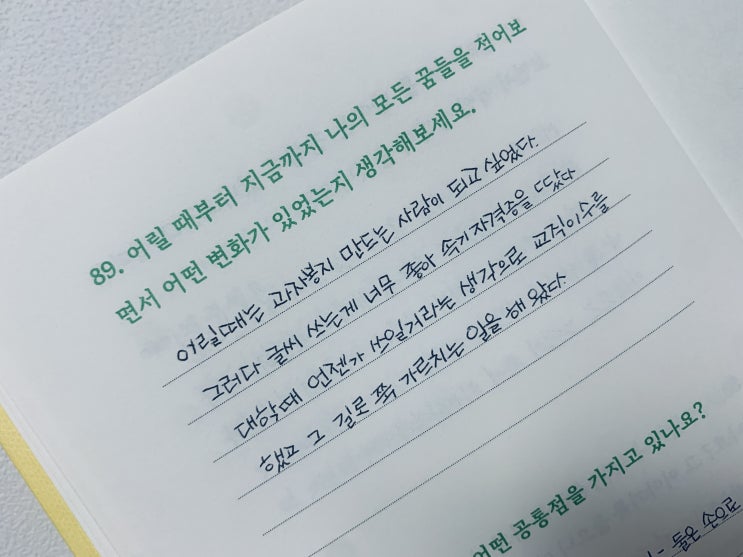 89. 어릴 때부터 지금까지 나의 모든 꿈들을 적어보
면서 어떤 변화가 있었는지 생각해보세요.
어릴때는 과자봉지 만드는 사람이 되고 싶었다.
그러다 글씨 쓰는게 너무 좋아 속기자격증을 땄다
대학때 언젠가 쓰일거라는 생각으로 교직이수를
했고 그 길로 쭉 가르치는 일을 해 왔다.
어떤 공통점을 가지고 있나요?
들은 손으로